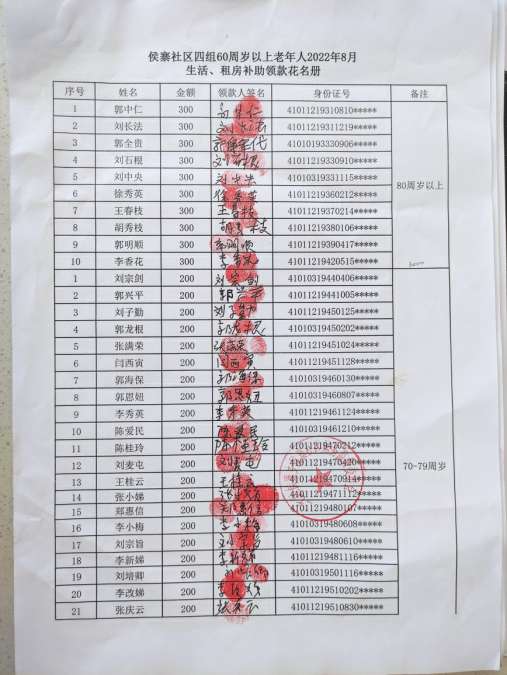 侯寨社区四组60周岁以上老年人2022年8月
生活、租房补助领款花名册
序号 姓名 金额 领款人签名 身份证号 备注
1 郭中仁 300 41011219310810*****
2 刘长法 300 41011219311219*****
3 郭全贵 300 41010193330906*****
4 刘石根 300 刘石根 41011219330910*****
5 刘中央 300 刘中央 41010319331115*****
6 徐秀英 300 徐秀英 41011219360212*****
7 王春枝 300 王春枝 41011219370214*****
8 胡秀枝 300 胡秀枝 41011219380106*****
9 郭明顺 300 41011219390417*****
10 李香花 300 41011219420515*****
80周岁以上
1 刘宗剑 200 刘宗剑 41010319440406*****
2 郭兴平 200 郭兴平 41011219441005*****
3 刘子勤 200 刘子勤 41011219450125*****
4 郭龙根 200 郭龙根 41010319450202*****
5 张满荣 200 41011219451024*****
6 闫西寅 200 闫西寅 41011219451128*****
7 郭海保 200 郭海保 41010319460130*****
8 郭恩妞 200 郭恩妞 41010319460807*****
9 李秀英 200 李秀英 41011219461124*****
10 陈爱民 200 陈爱民 41010319461210*****
11 陈桂玲 200 陈桂玲 41011219470212*****
12 刘麦屯 200 刘麦屯 41011219470420*****
13 王桂云 200 王桂云 41011219470914*****
14 张小娣 200 41011219471112*****
15 郑惠信 200 41011219480107*****
16 李小梅 200 李小梅 41010319480608*****
17 刘宗旨 200 刘宗旨 41010319480610*****
18 李新娣 200 李新娣 41011219481116*****
19 刘培卿 200 41010319501116*****
20 李改娣 200 41011219510202*****
21 张庆云 200 41011219510830*****
70-79周岁